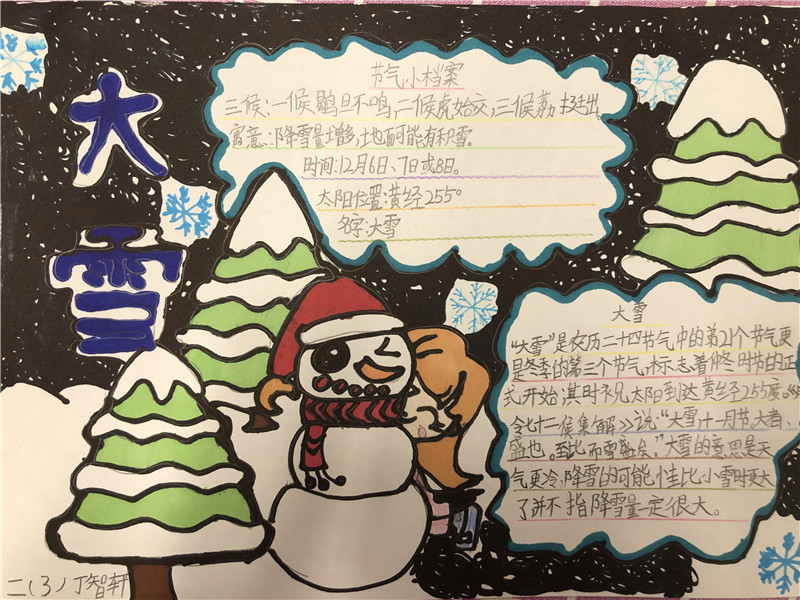 大雪
节气小档案
三候:一候鹖旦不鸣,二候虎始交,三候荔挺出。
寓意:降雪量增多,地面可能有积雪。
时间:12月6日、7日或8日。
太阳位置:黄经255°
名字:大雪
大雪
“大雪”是农历二十四节气中的第21个节气更
是冬季的第三个节气,标志着仲冬时节的正
式开始;其时视太阳到达黄经255度。《月
令七十二候集解》说:“大雪,十一月节。大者、
盛也。至此而雪盛矣。”大雪的意思是天
气更冷,降雪的可能性比小雪时更大
了并不指降雪量一定很大。
二(3)丁智轩